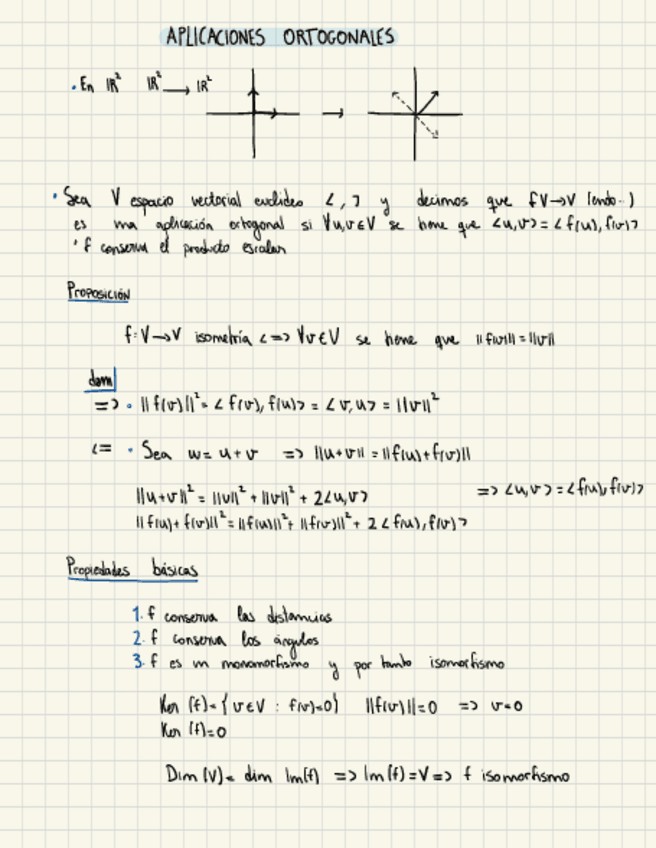 APLICACIONES ORTOGONALES
• En ℝ² ℝ² → ℝ²
• Sea V espacio vectorial euclideo <,> y decimos que f V→V (endo..)
es una aplicación ortogonal si ∀u,v ∈ V se tiene que <u,v> = <f(u), f(v)>
' f conserva el producto escalar
Proposición
f: V→V isometría <=> ∀v ∈ V se tiene que ||f(v)|| = ||v||
dem
=> • ||f(v)||² = <f(v), f(u)> = <v, u> = ||v||²
<= • Sea w = u + v => ||u+v|| = ||f(u)+f(v)||
||u+v||² = ||u||² + ||v||² + 2<u,v> => <u,v> = <f(u), f(v)>
||f(u)+f(v)||² = ||f(u)||² + ||f(v)||² + 2<f(u), f(v)>
Propiedades básicas
1. f conserva las distancias
2. f conserva los ángulos
3. f es un monomorfismo y por tanto isomorfismo
Ker (f) = {v ∈ V : f(v)=0} ||f(v)||=0 => v=0
Ker (f)=0
Dim (V) = dim Im(f) => Im(f) = V => f isomorfismo